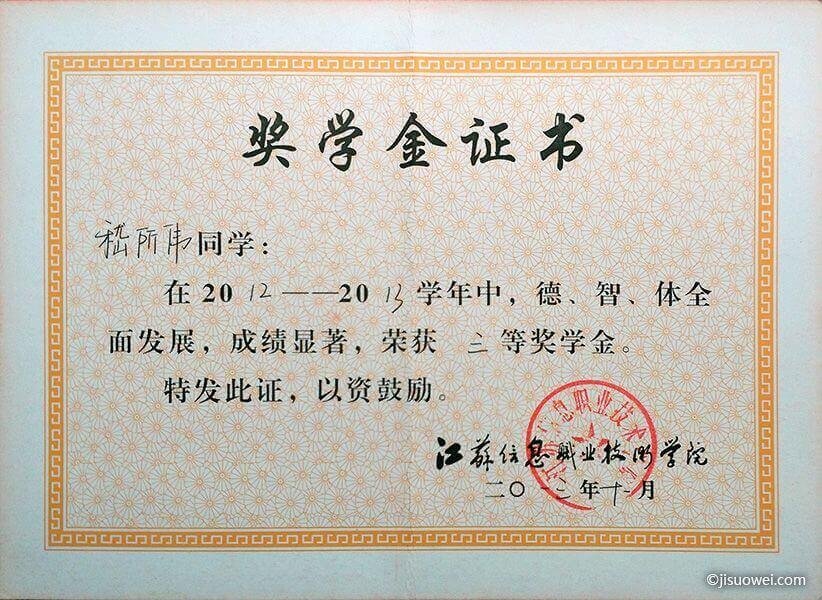 奖学金证书
嵇所伟同学：
在2012——2013学年中，德、智、体全
面发展，成绩显著，荣获 三 等奖学金。
特发此证，以资鼓励。
江苏信息职业技术学院
江苏信息职业技术学院
二〇一三年十一月
©jisuowei.com